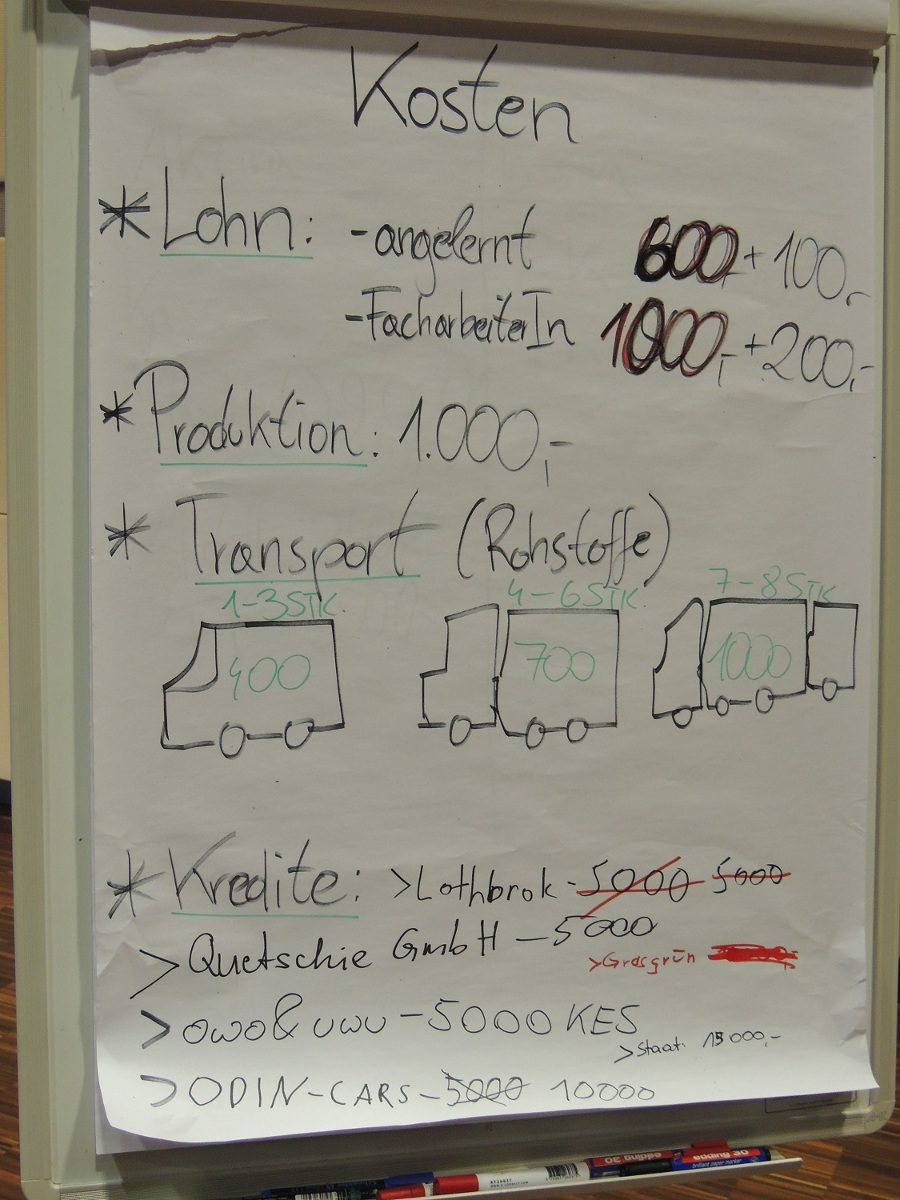 Kosten
* Lohn: -angelernt 600,- + 100,-
-FacharbeiterIn 1000,- + 200,-
* Produktion: 1.000,-
* Transport (Rohstoffe)
1-3 STK. 4-6 STK. 7-8 STK
400 700 1000
* Kredite: >Lothbrok - 5000 5000
> Quetschie GmbH - 5000
>Grasgrün
> owo & uwu - 5000 KES
>Staat: 15000,-
> ODIN-CARS - 5000 10000
edding 30
edding 30
brilliant paper marker